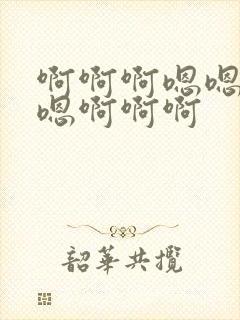 啊啊啊嗯嗯
嗯啊啊啊
韶華共攬